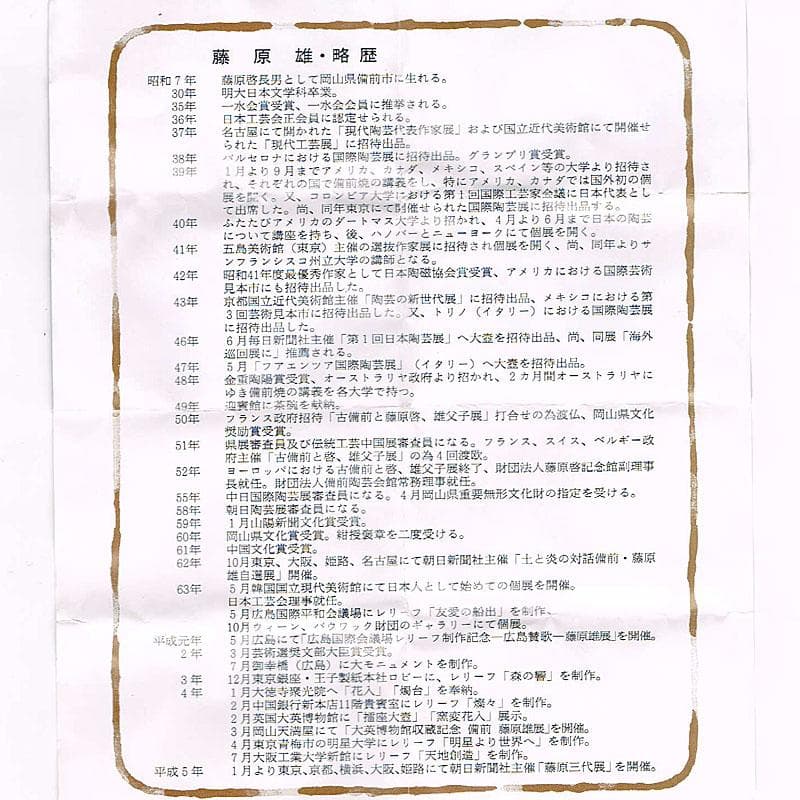 藤原 雄・略歴
昭和7年 藤原啓長男として岡山県備前市に生れる。
30年 明大日本文学科卒業。
35年 一水会賞受賞、一水会会員に推挙される。
36年 日本工芸会正会員に認定せられる。
37年 名古屋にて開かれた「現代陶芸代表作家展」および国立近代美術館にて開催せ
られた「現代工芸展」に招待出品。
38年 バルセロナにおける国際陶芸展に招待出品。グランプリ賞受賞。
39年 1月より9月までアメリカ、カナダ、メキシコ、スペイン等の大学より招待さ
れ、それぞれの国で備前焼の講義をし、特にアメリカ、カナダでは国外初の個
展を開く。又、コロンビア大学における第1回国際工芸家会議に日本代表とし
て出席した。尚、同年東京にて開催せられた国際陶芸展に招待出品する。
40年 ふたたびアメリカのダートマス大学より招かれ、4月より6月まで日本の陶芸
について講座を持ち、後、ハノーバーとニューヨークにて個展を開く。
41年 五島美術館(東京)主催の選抜作家展に招待され個展を開く、尚、同年よりサ
ンフランシスコ州立大学の講師となる。
42年 昭和41年度最優秀作家として日本陶磁協会賞受賞、アメリカにおける国際芸術
見本市にも招待出品した。
43年 京都国立近代美術館主催「陶芸の新世代展」に招待出品、メキシコにおける第
3回芸術見本市に招待出品した。又、トリノ(イタリー)における国際陶芸展
に招待出品した。
46年 6月毎日新聞社主催「第1回日本陶芸展」へ大壺を招待出品、尚、同展「海外
巡回展に」推薦される。
47年 5月「フアエンツア国際陶芸展」(イタリー)へ大壺を招待出品。
48年 金重陶陽賞受賞、オーストラリヤ政府より招かれ、2カ月間オーストラリヤに
ゆき備前焼の講義を各大学で持つ。
49年 迎賓館に茶碗を献納。
50年 フランス政府招待「古備前と藤原啓、雄父子展」打合せの為渡仏、岡山県文化
奨励賞受賞。
51年 県展審査員及び伝統工芸中国展審査員になる。フランス、スイス、ベルギー政
府主催「古備前と啓、雄父子展」の為4回渡欧。
52年 ヨーロッパにおける古備前と啓、雄父子展終了、財団法人藤原啓記念館副理事
長就任。財団法人備前陶芸会館常務理事就任。
55年 中日国際陶芸展審査員になる。4月岡山県重要無形文化財の指定を受ける。
58年 朝日陶芸展審査員になる。
59年 1月山陽新聞文化賞受賞。
60年 岡山県文化賞受賞。紺授褒章を二度受ける。
61年 中国文化賞受賞。
62年 10月東京、大阪、姫路、名古屋にて朝日新聞社主催「土と炎の対話備前・藤原
雄自選展」開催。
63年 5月韓国国立現代美術館にて日本人として始めての個展を開催。
日本工芸会理事就任。
5月広島国際平和会議場にレリーフ「友愛の船出」を制作、
10月ウィーン、バウワック財団のギャラリーにて個展。
平成元年 5月広島にて「広島国際会議場レリーフ制作記念—広島賛歌—藤原雄展」を開催。
2年 3月芸術選奨文部大臣賞受賞。
7月御幸橋(広島)に大モニュメントを制作。
3年 12月東京銀座・王子製紙本社ロビーに、レリーフ「森の響」を制作。
4年 1月大徳寺聚光院へ「花入」「燭台」を奉納。
2月中国銀行新本店11階貴賓室にレリーフ「燦々」を制作。
2月英国大英博物館に「擂座大壺」「窯変花入」展示。
3月岡山天満屋にて「大英博物館収蔵記念 備前 藤原雄展」を開催。
4月東京青梅市の明星大学にレリーフ「明星より世界へ」を制作。
7月大阪工業大学新館にレリーフ「天地創造」を制作。
平成5年 1月より東京、京都、横浜、大阪、姫路にて朝日新聞社主催「藤原三代展」を開催。